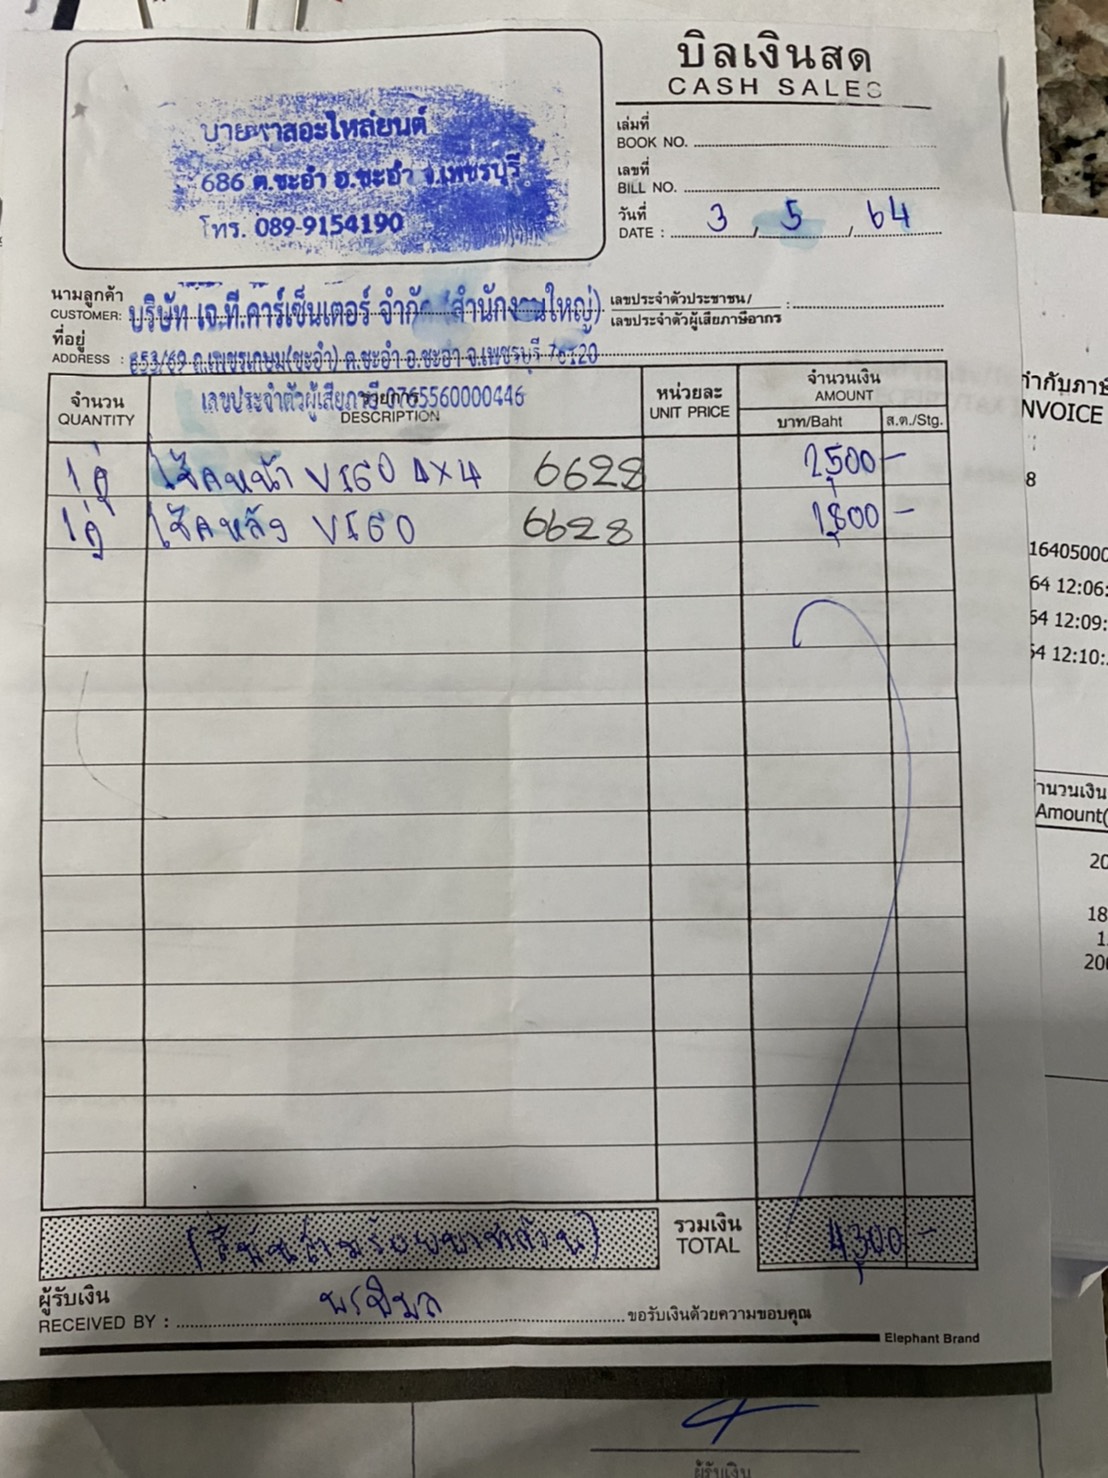 บิลเงินสด
CASH SALES
บายพาสอะไหล่ยนต์
686 ต.ชะอำ อ.ชะอำ จ.เพชรบุรี
โทร. 089-9154190
เล่มที่
BOOK NO.
เลขที่
BILL NO.
วันที่
DATE : 3 / 5 / 64
นามลูกค้า
CUSTOMER: บริษัท เจ.ที.คาร์เซ็นเตอร์ จำกัด (สำนักงานใหญ่)
เลขประจำตัวประชาชน/
เลขประจำตัวผู้เสียภาษีอากร :
ที่อยู่
ADDRESS : 853/69 ถ.เพชรเกษม(ชะอำ) ต.ชะอำ อ.ชะอำ จ.เพชรบุรี 76120
เลขประจำตัวผู้เสียภาษี 0765560000446
จำนวน
QUANTITY
รายการ
DESCRIPTION
หน่วยละ
UNIT PRICE
จำนวนเงิน
AMOUNT
บาท/Baht
ส.ต./Stg.
1 คู่ โช๊คหน้า VIGO 4×4 6628 2,500 -
1 คู่ โช๊คหลัง VIGO 6628 1,800 -
(สี่พันสามร้อยบาทถ้วน)
รวมเงิน
TOTAL
4,300 -
ผู้รับเงิน
RECEIVED BY : พรพิมล ขอรับเงินด้วยความขอบคุณ
Elephant Brand
NVOICE
8
16405000
64 12:06:
64 12:09:
64 12:10:
านวนเงิน
Amount(
20
18
1
20
ผู้รับเงิน